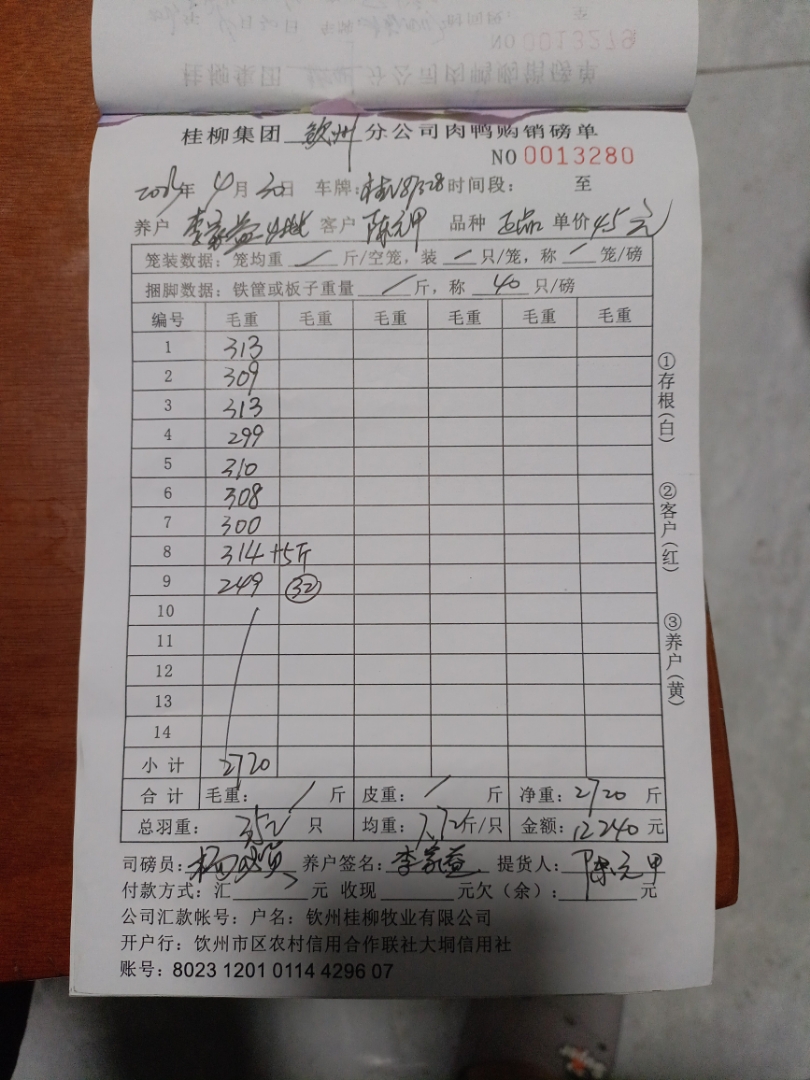 NO 0013279
桂柳集团 分公司肉鸭购销磅单
桂柳集团 钦州 分公司肉鸭购销磅单
NO 0013280
年 4月30日 车牌： 时间段： 至
养户 李家益 客户 陈元甲 品种 正品 单价 4.5元
笼装数据：笼均重 / 斤/空笼，装 / 只/笼，称 / 笼/磅
捆脚数据：铁筐或板子重量 / 斤，称 40 只/磅
编号 毛重 毛重 毛重 毛重 毛重 毛重
1 313
2 309
3 313
4 299
5 310
6 308
7 300
8 314 +5斤
9 249 32
10
11
12
13
14
小计 2720
合计 毛重： / 斤 皮重： / 斤 净重：2720 斤
总羽重： 352 只 均重：7.72斤/只 金额：12240 元
司磅员： 养户签名：李家益 提货人：陈元甲
付款方式：汇 元 收现 元欠（余）： 元
公司汇款帐号：户名：钦州桂柳牧业有限公司
开户行：钦州市区农村信用合作联社大垌信用社
账号：8023 1201 0114 4296 07
①存根（白）
②客户（红）
③养户（黄）